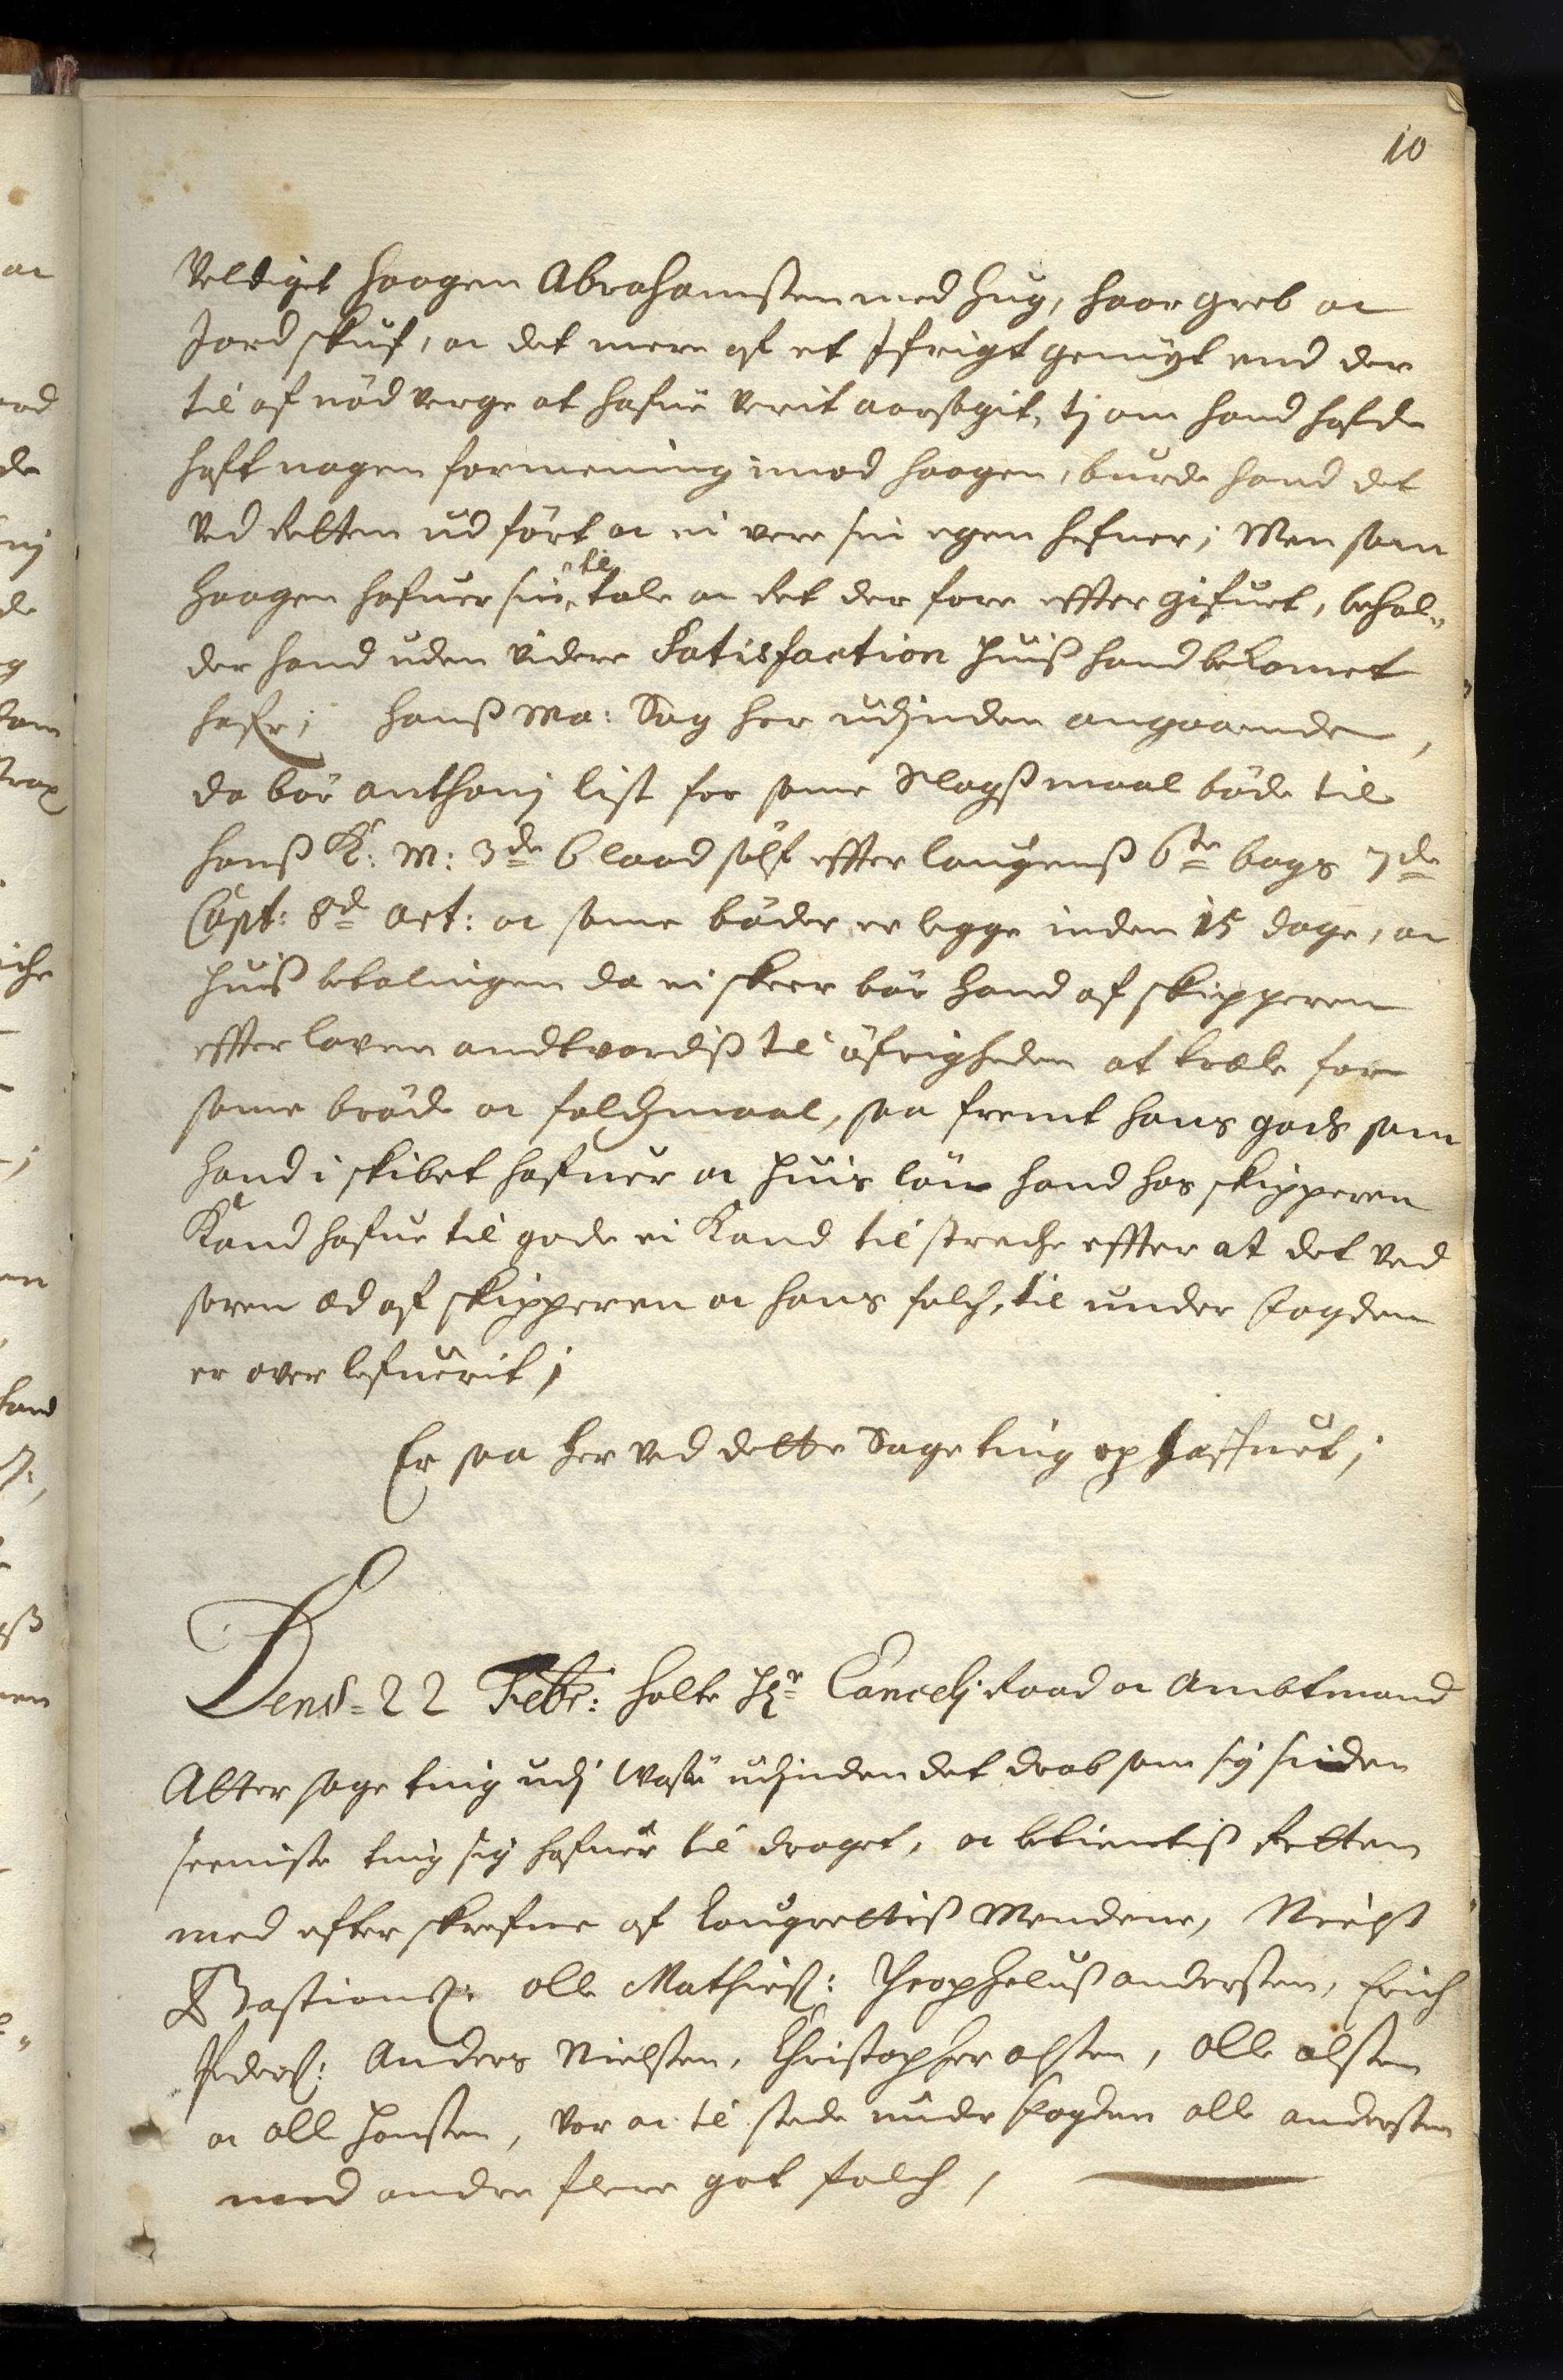 10
Veldiget Haagen Abrahamsten med hug, haar greb oc
Jord skuf, oc det mere af et Ifrigt gemüyt end der
til af nöd verge at hafue verit aarsagit, tj om hand hafde
haft nogen formening imod Haagen, burde hand det
ved Retten ud fört oc ei vere sin egen hefner; Men som
Haagen hafuer sin til tale oc Ret der fore effter gifuet, behol„
der hand uden videre Satisfaction huiß hand bekomet
hafr; Hanß Ma: Sag her udjnden angaaende,
da bör Anthonj List for same Slagßmaal böde til
Hanß K: M: 3de laad sölf effter lougenß 6te bogs 7de
Capt: 8d Art: oc same böder er legge inden 15 dage, oc
huiß betalingen da ei skeer bör hand af skipperen
effter loven andtvordiß til öfrigheden at træle for
same bröde oc faldzmaal, saa fremt hans gods som
hand i skibet hafuer oc huis lön hand hos skipperen
Kand hafue til gode ei Kand til streche effter at det ved
soren æd af skipperen oc hans folch, til under fogden
er over lefuerit;
Er saa her ved dette Sage ting op haffuet;
Dend= 22 Febr: holte Hr Cancelj Raad oc Ambtmand
Atter sage ting udj Wasöe udjnden det drab som sig siden
seeniste ting sig hafuer til draget, oc betientiß Retten
med efter skrefne af Laugrettiß Mendene, Nielß
Bastianß: Olle Mathieß: Theophelus andersten, Erich
Pederß: Anders Nielsten, Christopher olsten, Olle olsten
oc Oll Hansten, var oc til stede under fogden Olle andersten
med andre flere got folch,